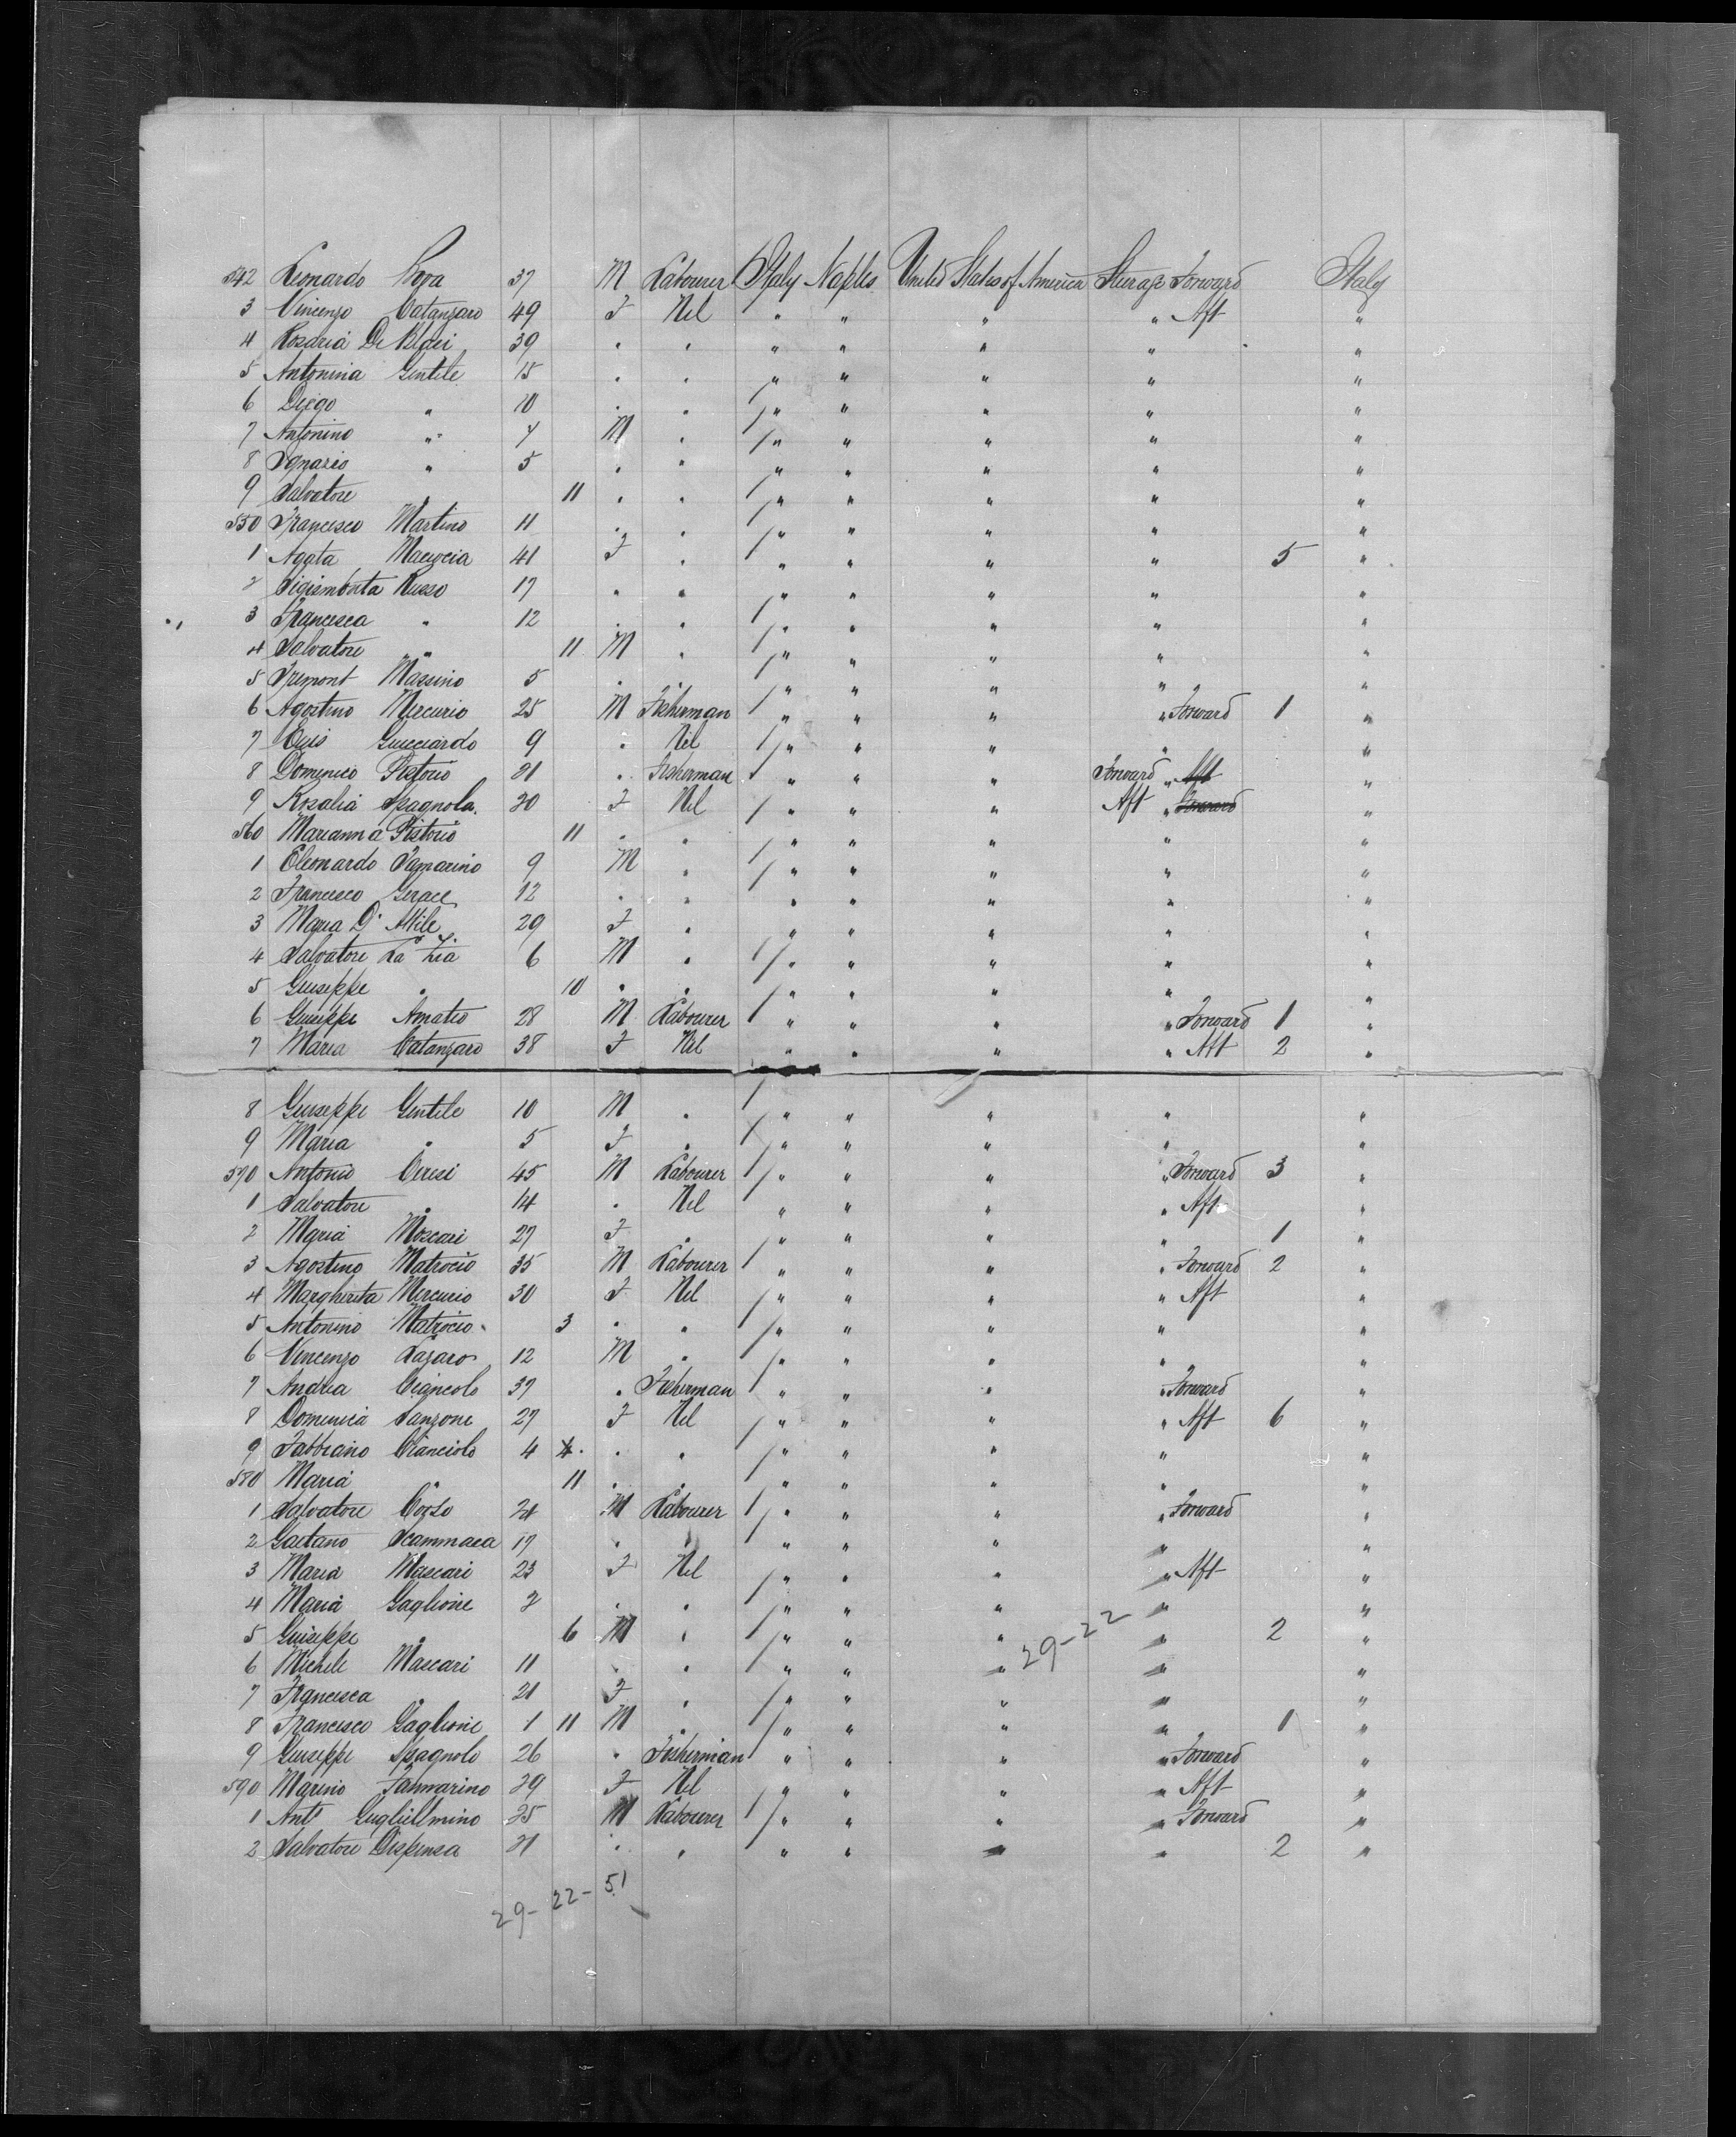 542 Leonardo Roza 37 M Labourer Italy Naples United States of America Steerage Forward Italy
3 Vincenzo Catanzaro 49 F Nil " " " " Aft "
4 Rosaria Di Blasi 39 " " " " " " "
5 Antonina Gentile 15 " " " " " " "
6 Diego " 10 " " " " " " "
7 Antonino " 7 M " " " " " "
8 Ignazio " 5 " " " " " " "
9 Salvatore " 11 " " " " " " "
550 Francesco Martino 11 " " " " " " "
1 Agata 41 F " " " " " 5 "
2 Russo 17 " " " " " " "
3 Francesca " 12 " " " " " " "
4 Salvatore " 11 M " " " " " "
5 Tremont Massino 5 " " " " " " "
6 Agostino Mercurio 25 M Fisherman " " " " Forward 1 "
7 Luis Guicciardo 9 " Nil " " " " "
8 Domenico Pistorio 21 " Fisherman " " " Forward " Aft "
9 Rosalia Spagnola 20 F Nil " " " Aft " Forward "
560 Marianna Pistorio 11 " " " " " " "
1 Eleonardo Tamarino 9 M " " " " " "
2 Francesco Gerace 12 " " " " " " "
3 Maria D' Attile 29 F " " " " " "
4 Salvatore La Zia 6 M " " " " " "
5 Giuseppe " 10 " " " " " " "
6 Giuseppe Amateo 28 M Labourer " " " " Forward 1 "
7 Maria Catanzaro 38 F Nil " " " " Aft 2 "
8 Giuseppe Gentile 10 M " " " " " "
9 Maria " 5 F " " " " " "
570 Antonio Ceresi 45 M Labourer " " " " Forward 3 "
1 Salvatore " 14 " Nil " " " " Aft "
2 Maria Moscari 27 F " " " " " 1 "
3 Agostino Matrocio 35 M Labourer " " " " Forward 2 "
4 Margherita Mercurio 30 F Nil " " " " Aft "
5 Antonino Matrocio 3 " " " " " " "
6 Vincenzo Lazaro 12 M " " " " " "
7 Andrea Cianciolo 37 " Fisherman " " " " Forward "
8 Domenica Sanzone 27 F Nil " " " " Aft 6 "
9 Fabbiano Cianciolo 4 4 " " " " " " "
580 Maria " 11 " " " " " " "
1 Salvatore Corso 24 M Labourer " " " " Forward "
2 Gaetano Scammaca 17 " " " " " " "
3 Maria Mascari 23 F Nil " " " " Aft "
4 Maria Gaglione 2 " " " " " " "
5 Giuseppe " 6 M " " " " 29-22 " 2 "
6 Michele Mascari 11 " " " " " " "
7 Francesca " 21 F " " " " " "
8 Francesco Gaglione 1 11 M " " " " " 1 "
9 Giuseppe Spagnolo 26 " Fisherman " " " " Forward "
590 Marino Tammarino 29 F Nil " " " " Aft "
1 Anto Gugliellmino 25 M Labourer " " " " Forward "
2 Salvatore Dispensa 21 " " " " " " 2 "
29-22-51